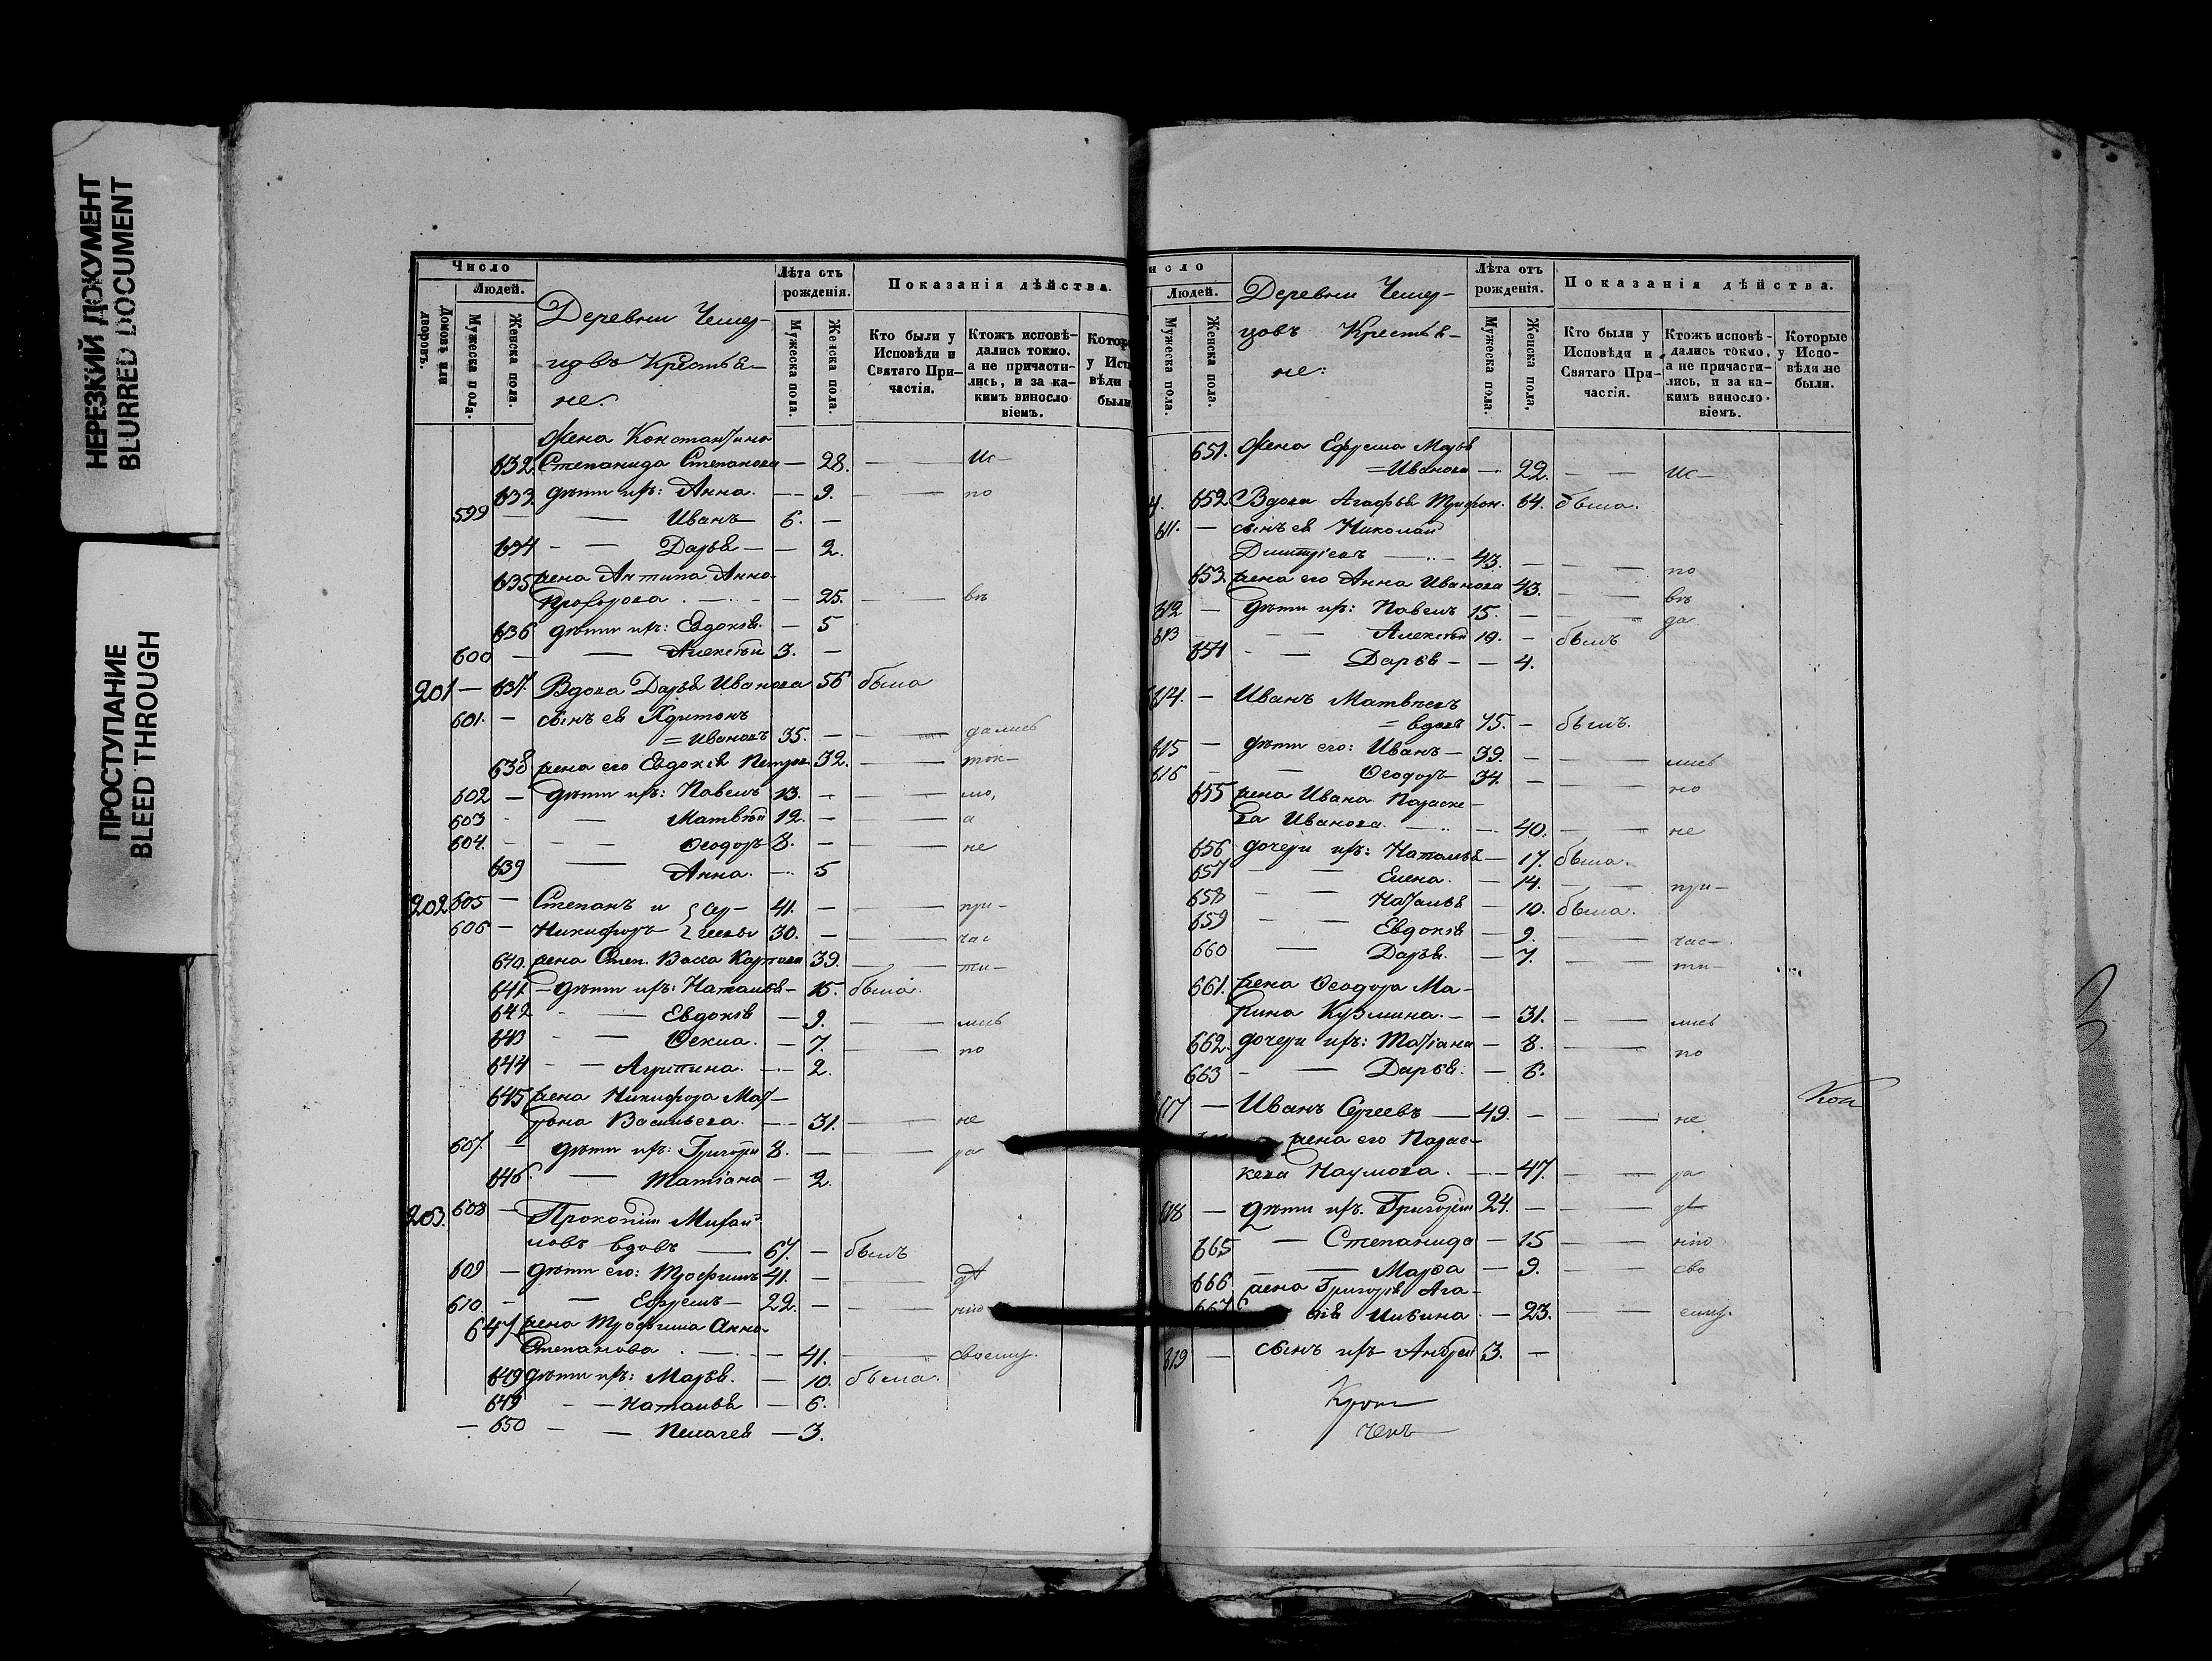 НЕРЕЗКИЙ ДОКУМЕНТ
BLURRED DOCUMENT
ПРОСТУПАНИЕ
BLEED THROUGH
Число
Людей.
Домовъ или дворовъ.
Мужеска пола.
Женска пола.
Деревни
Крестья-
не.
Лѣта отъ рожденія.
Мужеска пола.
Женска пола.
Показанія дѣйства.
Кто были у Исповѣди и Святаго При-частія.
Ктожъ исповѣ-дались токмо, а не причасти-лись, и за ка-кимъ винословіемъ.
жена Константина
632. Степанида Степанова — 28. — Ис-
633. дѣти ихъ: Анна. — 9. — по
599 — Иванъ 6. —
634 — Дарья — 2.
635 жена Антипа Анна
Прохорова — 25. — вѣ
636 дѣти ихъ: Евдокія — 5
600 — Алексѣй 3. —
201 — 637. Вдова Дарья Иванова 56 была
601. — сынъ ея Харитонъ
= Ивановъ 35. — дались
638 жена его Евдокія Петров 32. — ток-
602 — дѣти ихъ: Павелъ 13. — мо,
603 — Матвѣй 12. — а
604. — Ѳеодоръ 8. — не
639 — Анна. — 5
202 605 — Степанъ и Сер- 41. — при-
606 — Никифоръ геевы 30. — час
640. жена Степ. Васса Карпова 39. — ти-
641 — дѣти ихъ: Наталья — 15. была.
642 — Евдокія — 9. — лись
643 — Ѳекла. — 7. — по
644 — Агрипина. — 2.
645 жена Никифора Мат-
рона Васильева. — 31. — не
607. — дѣти ихъ: Григорій 8. — ра
646. — Татіана — 2.
203. 608 — Прокопій Михай-
ловъ вдовъ — 67. — былъ
609 — дѣти его: Трофимъ 41. — дѣ
610. — Ефремъ — 22. — нію
647 жена Трофима Анна
Степанова — 41. — своему.
649 дѣти ихъ: Марья. — 10. была.
649 — Наталья — 6.
— 650 — Пелагея — 3.
Людей.
Мужеска пола.
Женска пола.
Деревни
Крестья-
не:
Лѣта отъ рожденія.
Мужеска пола.
Женска пола,
Показанія дѣйства.
Кто были у Исповѣди и Святаго При-частія.
Ктожъ исповѣ-дались токмо, а не причасти-лись, и за ка-кимъ винословіемъ.
Которые у Испо-вѣди не были.
651. жена Ефрема Марья
= Иванова — 22. — Ис-
652 Вдова Агафья Трифон. 64. была.
611. — сынъ ея Николай
Дмитріевъ — 43. — по
653. жена его Анна Иванова 43. — вѣ
612 — дѣти ихъ: Павелъ 15. — да
613 — Алексѣй 19. — былъ
654 — Дарья — 4.
614. — Иванъ Матвѣевъ
= вдовъ 75. — былъ.
615 — дѣти его: Иванъ — 39. — лись
616 — Ѳеодоръ 34. — но
655 жена Ивана Параске-
ва Иванова. — 40. — не
656 дочери ихъ: Наталья — 17. была.
657 — Елена. — 14. — при-
658 — Наталья — 10. была.
659 — Евдокія — 9. — час-
660 — Дарья. — 7. — ти-
661. жена Ѳеодора Ма-
рина Кузмина. — 31. — лись
662. дочери ихъ: Татіана — 8. — по
663 — Дарья. — 6.
617 — Иванъ Сергеевъ — 49. — не
жена его Парас-
кева Наумова. — 47. — ра
618 — дѣти ихъ: Григорій 24. — дѣ
665 — Степанида — 15 — нію
666 — Марѳа — 9. — сво
667 жена Григорія Ага-
ѳія — 23. — ему.
619 — сынъ ихъ Андрей 3. —